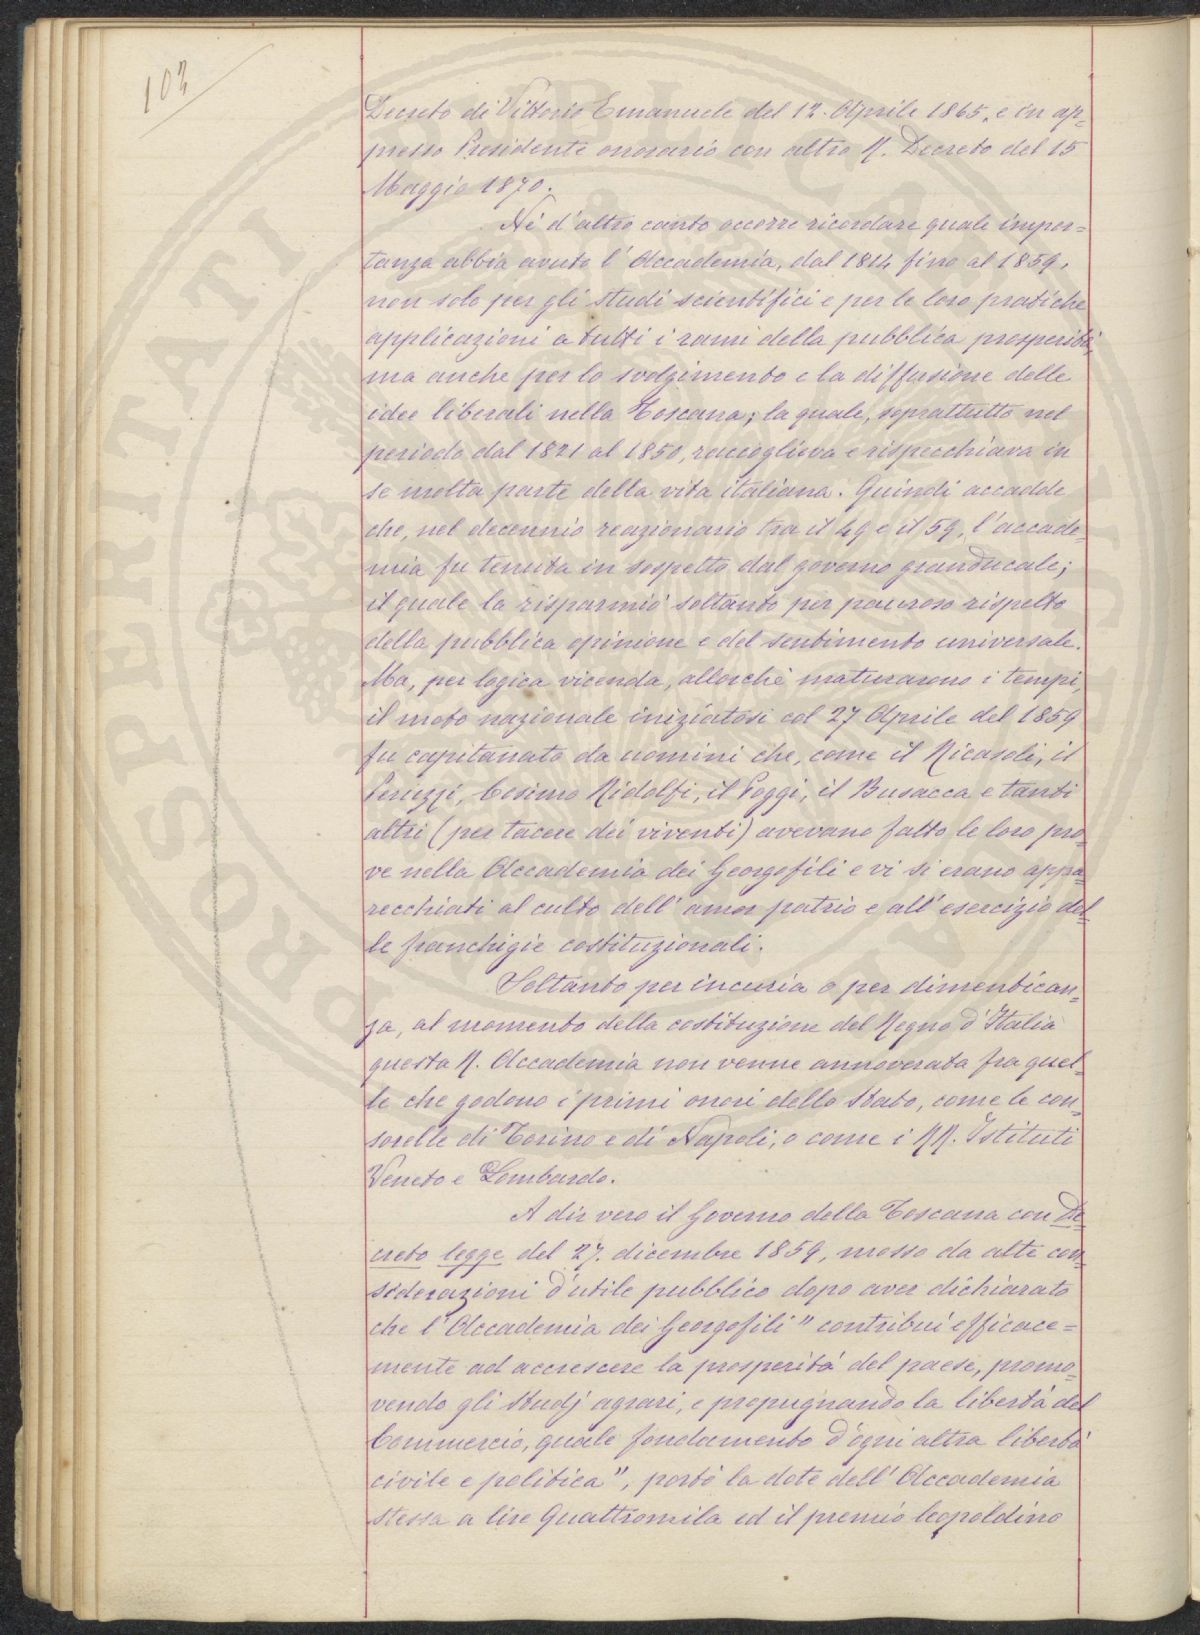 102
Decreto di Vittorio Emanuele del 12. Aprile 1865, e in ap=
presso Presidente onorario con altro R. Decreto del 15
Maggio 1870.
Nè d'altro canto occorre ricordare quale impor=
tanza abbia avuto l'Accademia, dal 1814 fino al 1859,
non solo per gli studi scientifici e per le loro pratiche
applicazioni a tutti i rami della pubblica prosperità,
ma anche per lo svolgimento e la diffusione delle
idee liberali nella Toscana; la quale, soprattutto nel
periodo dal 1821 al 1850, raccoglieva e rispecchiava in
se molta parte della vita italiana. Quindi accadde
che, nel decennio reazionario tra il 49 e il 59, l'accade=
mia fu tenuta in sospetto dal governo granducale;
il quale la risparmiò soltanto per pauroso rispetto
della pubblica opinione e del sentimento universale.
Ma, per logica vicenda, allorchè maturarono i tempi,
il moto nazionale iniziatosi col 27 Aprile del 1859
fu capitanato da uomini che, come il Ricasoli, il
Peruzzi, Cosimo Ridolfi, il Poggi, il Busacca e tanti
altri (per tacere dei viventi) avevano fatto le loro pro=
ve nella Accademia dei Georgofili e vi si erano appa=
recchiati al culto dell'amor patrio e all'esercizio del=
le franchigie costituzionali.
Soltanto per incuria o per dimentican=
za, al momento della costituzione del Regno d'Italia
questa R. Accademia non venne annoverata fra quel=
le che godono i primi onori dello Stato, come le con=
sorelle di Torino e di Napoli, o come i RR. Istituti
Veneto e Lombardo.
A dir vero il Governo della Toscana con De=
creto legge del 27. dicembre 1859, mosso da alte con=
siderazioni d'utile pubblico dopo aver dichiarato
che l'Accademia dei Georgofili "contribuì efficace=
mente ad accrescere la prosperità del paese, promo=
vendo gli studj agrari, e propugnando la libertà del
Commercio, quale fondamento d'ogni altra libertà
civile e politica", portò la dote dell'Accademia
stessa a lire Quattromila ed il premio leopoldino
PROSPERITATI PUBLICAE AUGENDAE